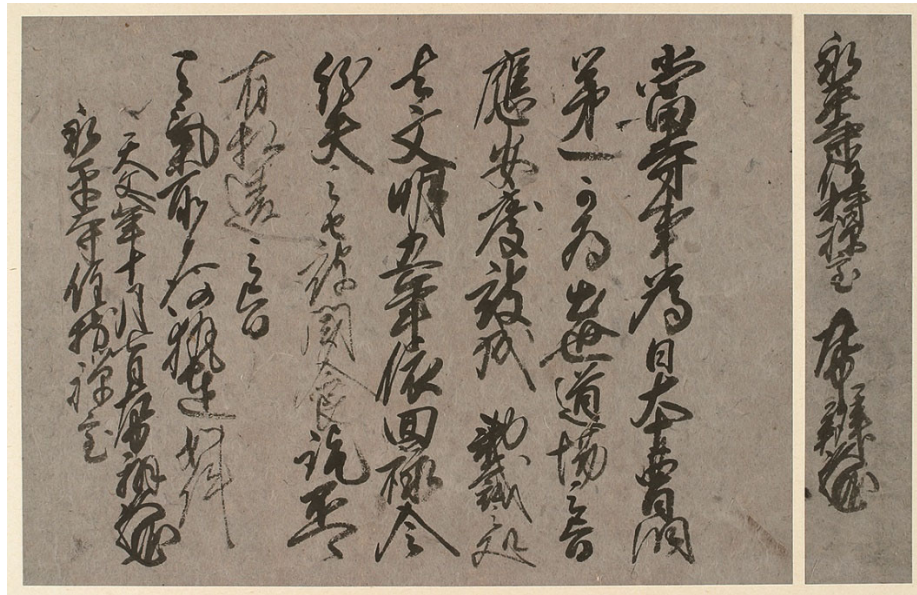 永平寺住持禅室
當寺事為日本曹洞
第一可為出世道場之旨
應安度被成 勅裁之処
去文明五年依回禄令
紛失之也被聞食訖不可
有相違之旨
天氣所候仍執達如件
天文年十月日
永平寺住持禅室